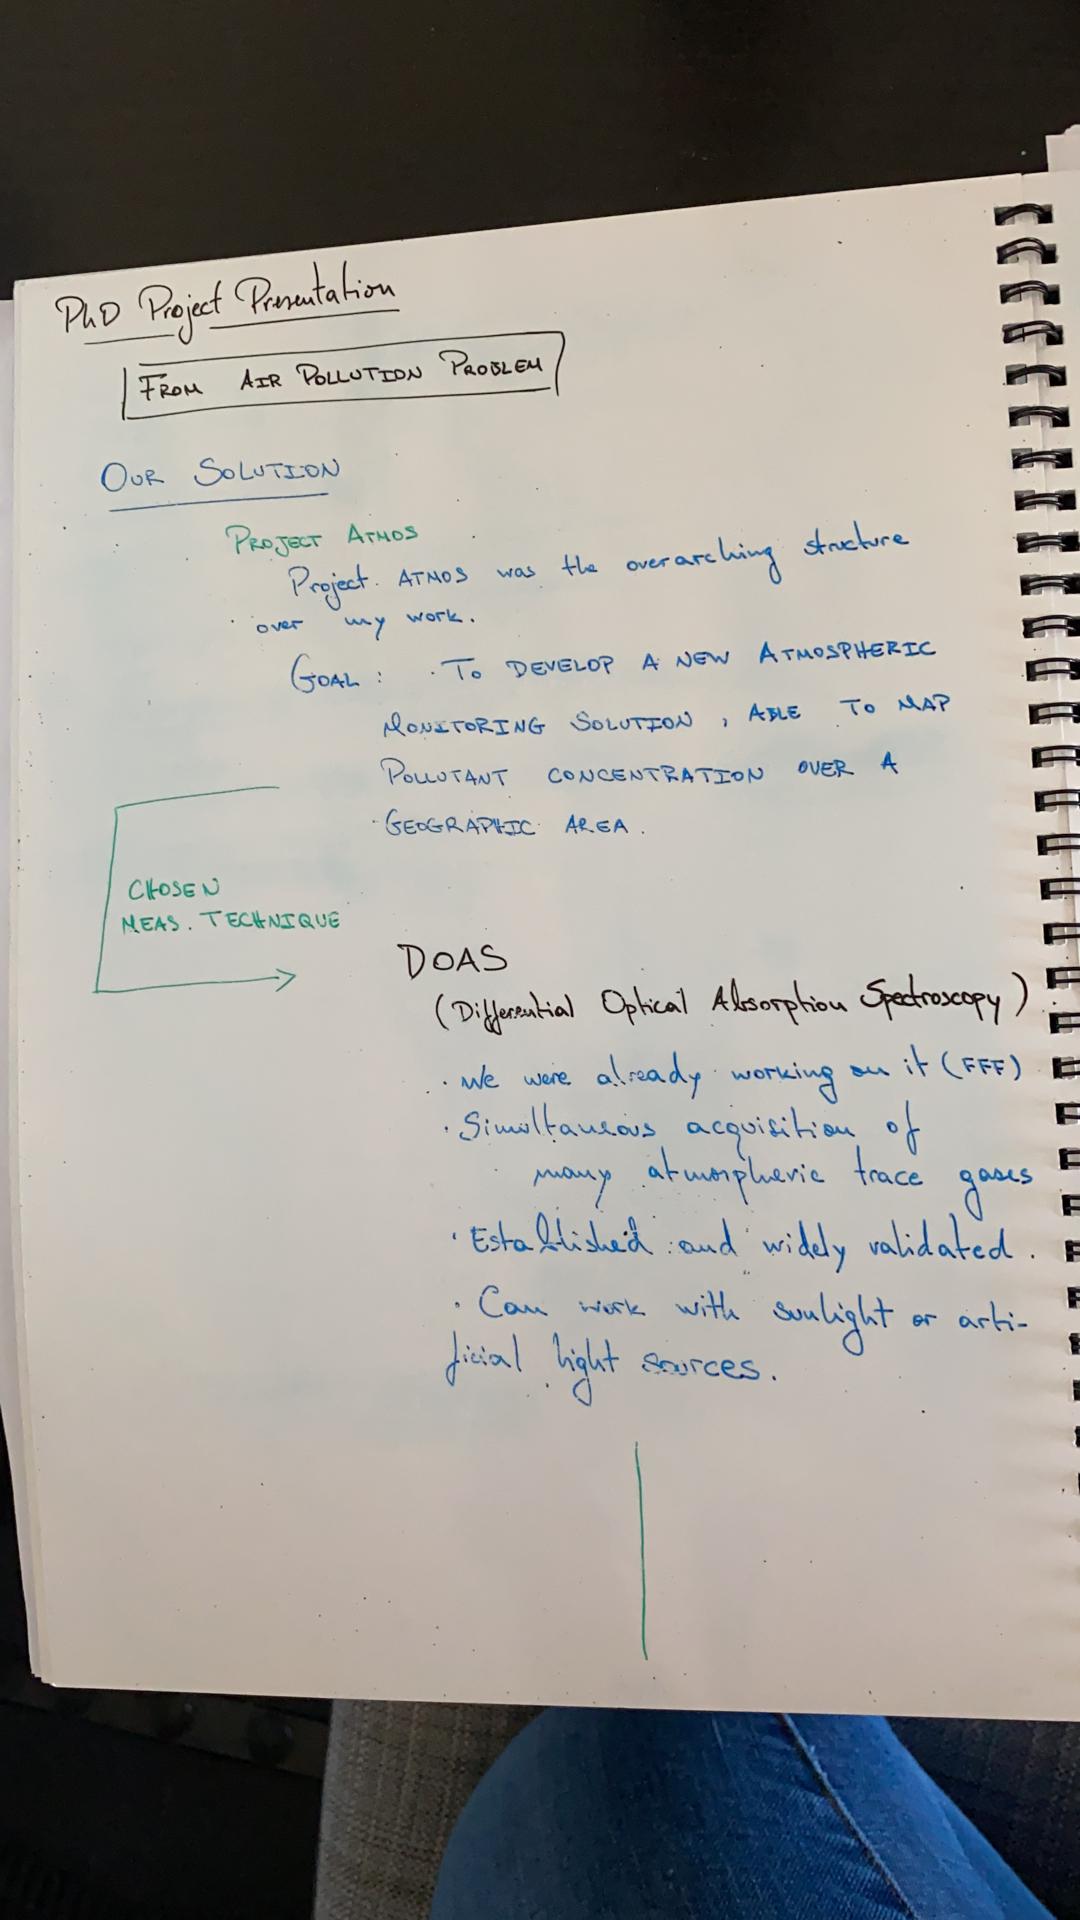 PhD Project Presentation
FROM AIR POLLUTION PROBLEM
OUR SOLUTION
PROJECT ATMOS
Project ATMOS was the overarching structure
over my work.
GOAL: TO DEVELOP A NEW ATMOSPHERIC
MONITORING SOLUTION, ABLE TO MAP
POLLUTANT CONCENTRATION OVER A
GEOGRAPHIC AREA.
CHOSEN
MEAS. TECHNIQUE
DOAS
(Differential Optical Absorption Spectroscopy)
· We were already working on it (FFF)
· Simultaneous acquisition of
many atmospheric trace gases
· Established and widely validated.
· Can work with sunlight or arti-
ficial light sources.